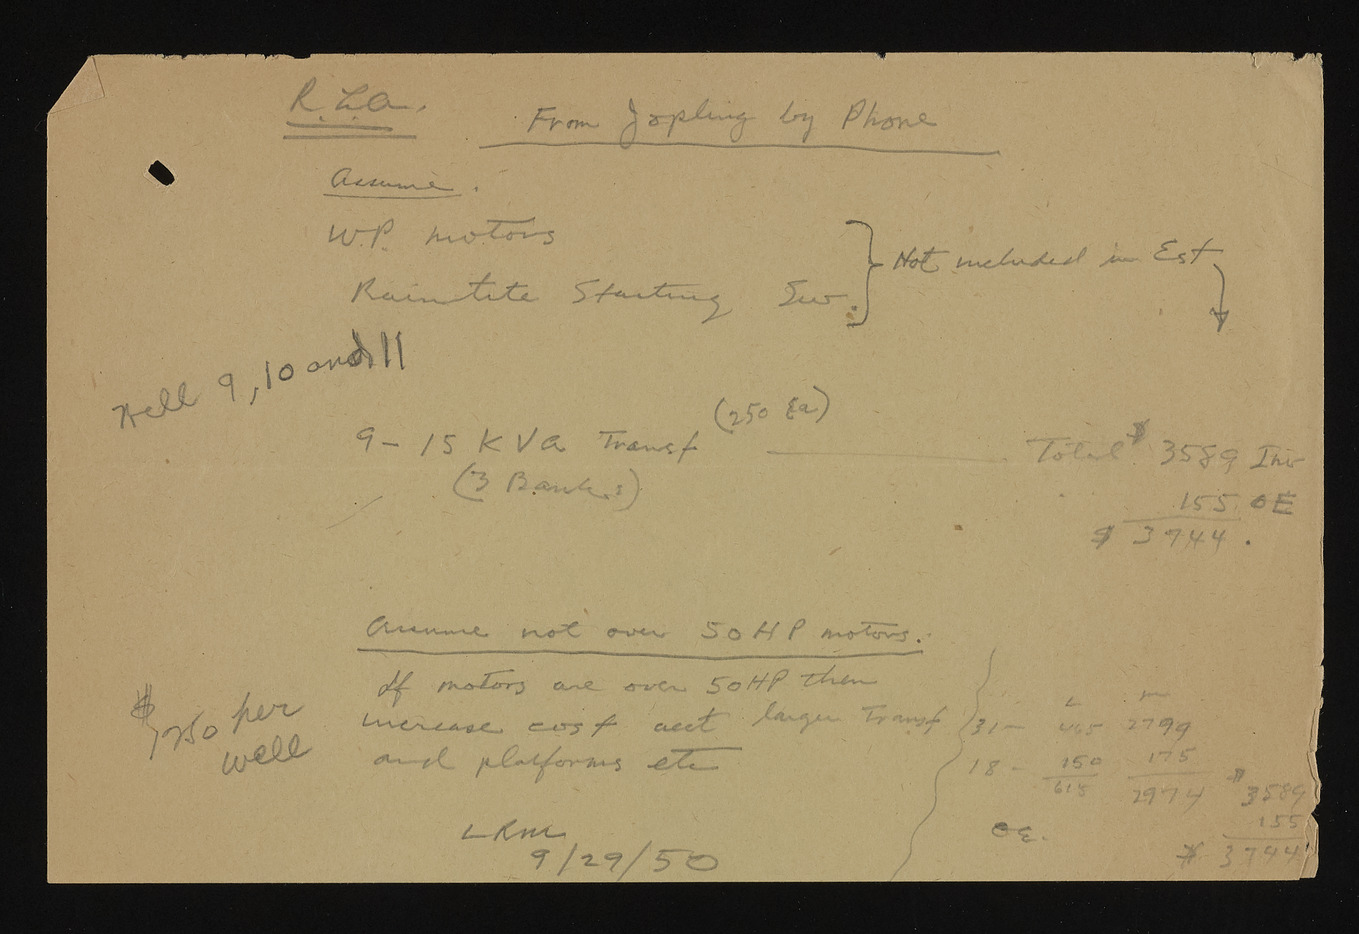 R.L.A.
From Jopling by Phone
Assume.
W.P. motors
Raintite Starting Sw.
} Not included in Est
Well 9, 10 and 11
(250 Ea)
9 - 15 KVA Transf ——— Total $ 3589 Inv
(3 Banks)
155 OE
$ 3744.
Assume not over 50 HP motors.
If motors are over 50 HP then
increase cost acct larger Transf
and platforms etc
$1250 per
well
L m
31 - 465 2799
18 - 150 175
615 2974 $ 3589
OE. 155
$ 3744
LRM
9/29/50